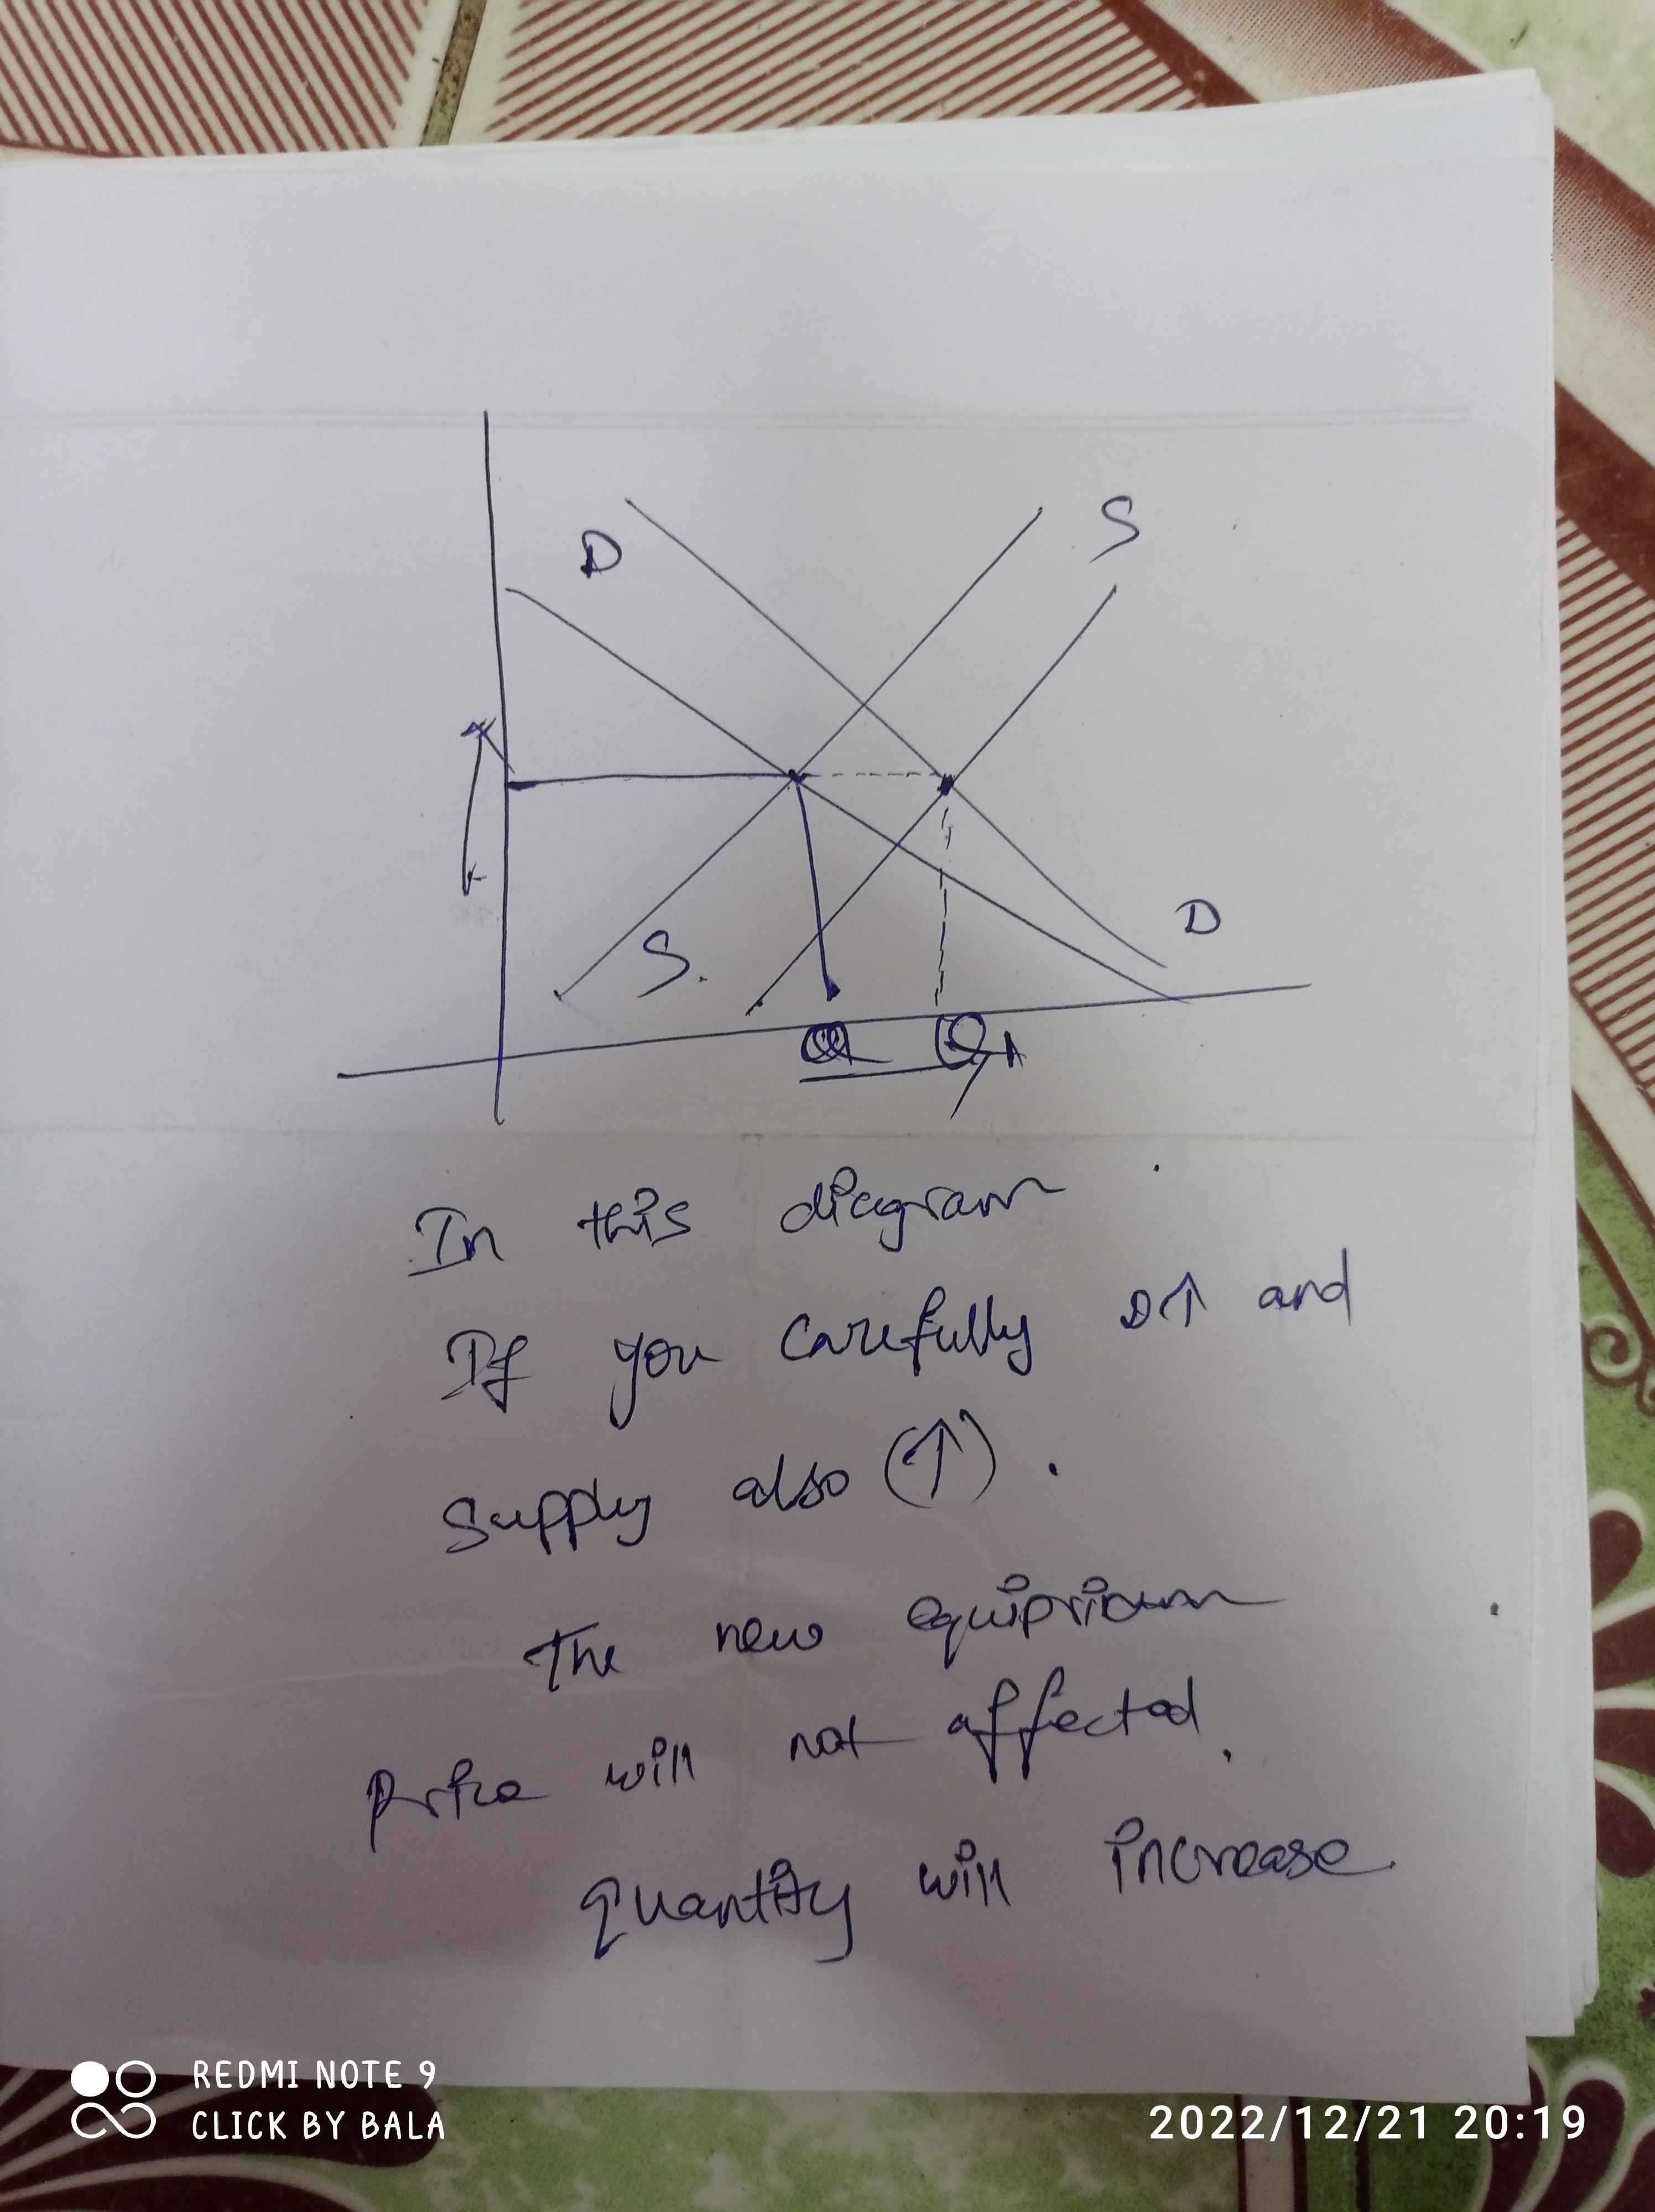 D
S
S.
D
Q
In this diagram
If you carefully D↑ and
Supply also (↑).
The new equiprium
Price will not affected.
Quantity will increase
REDMI NOTE 9
CLICK BY BALA
2022/12/21 20:19